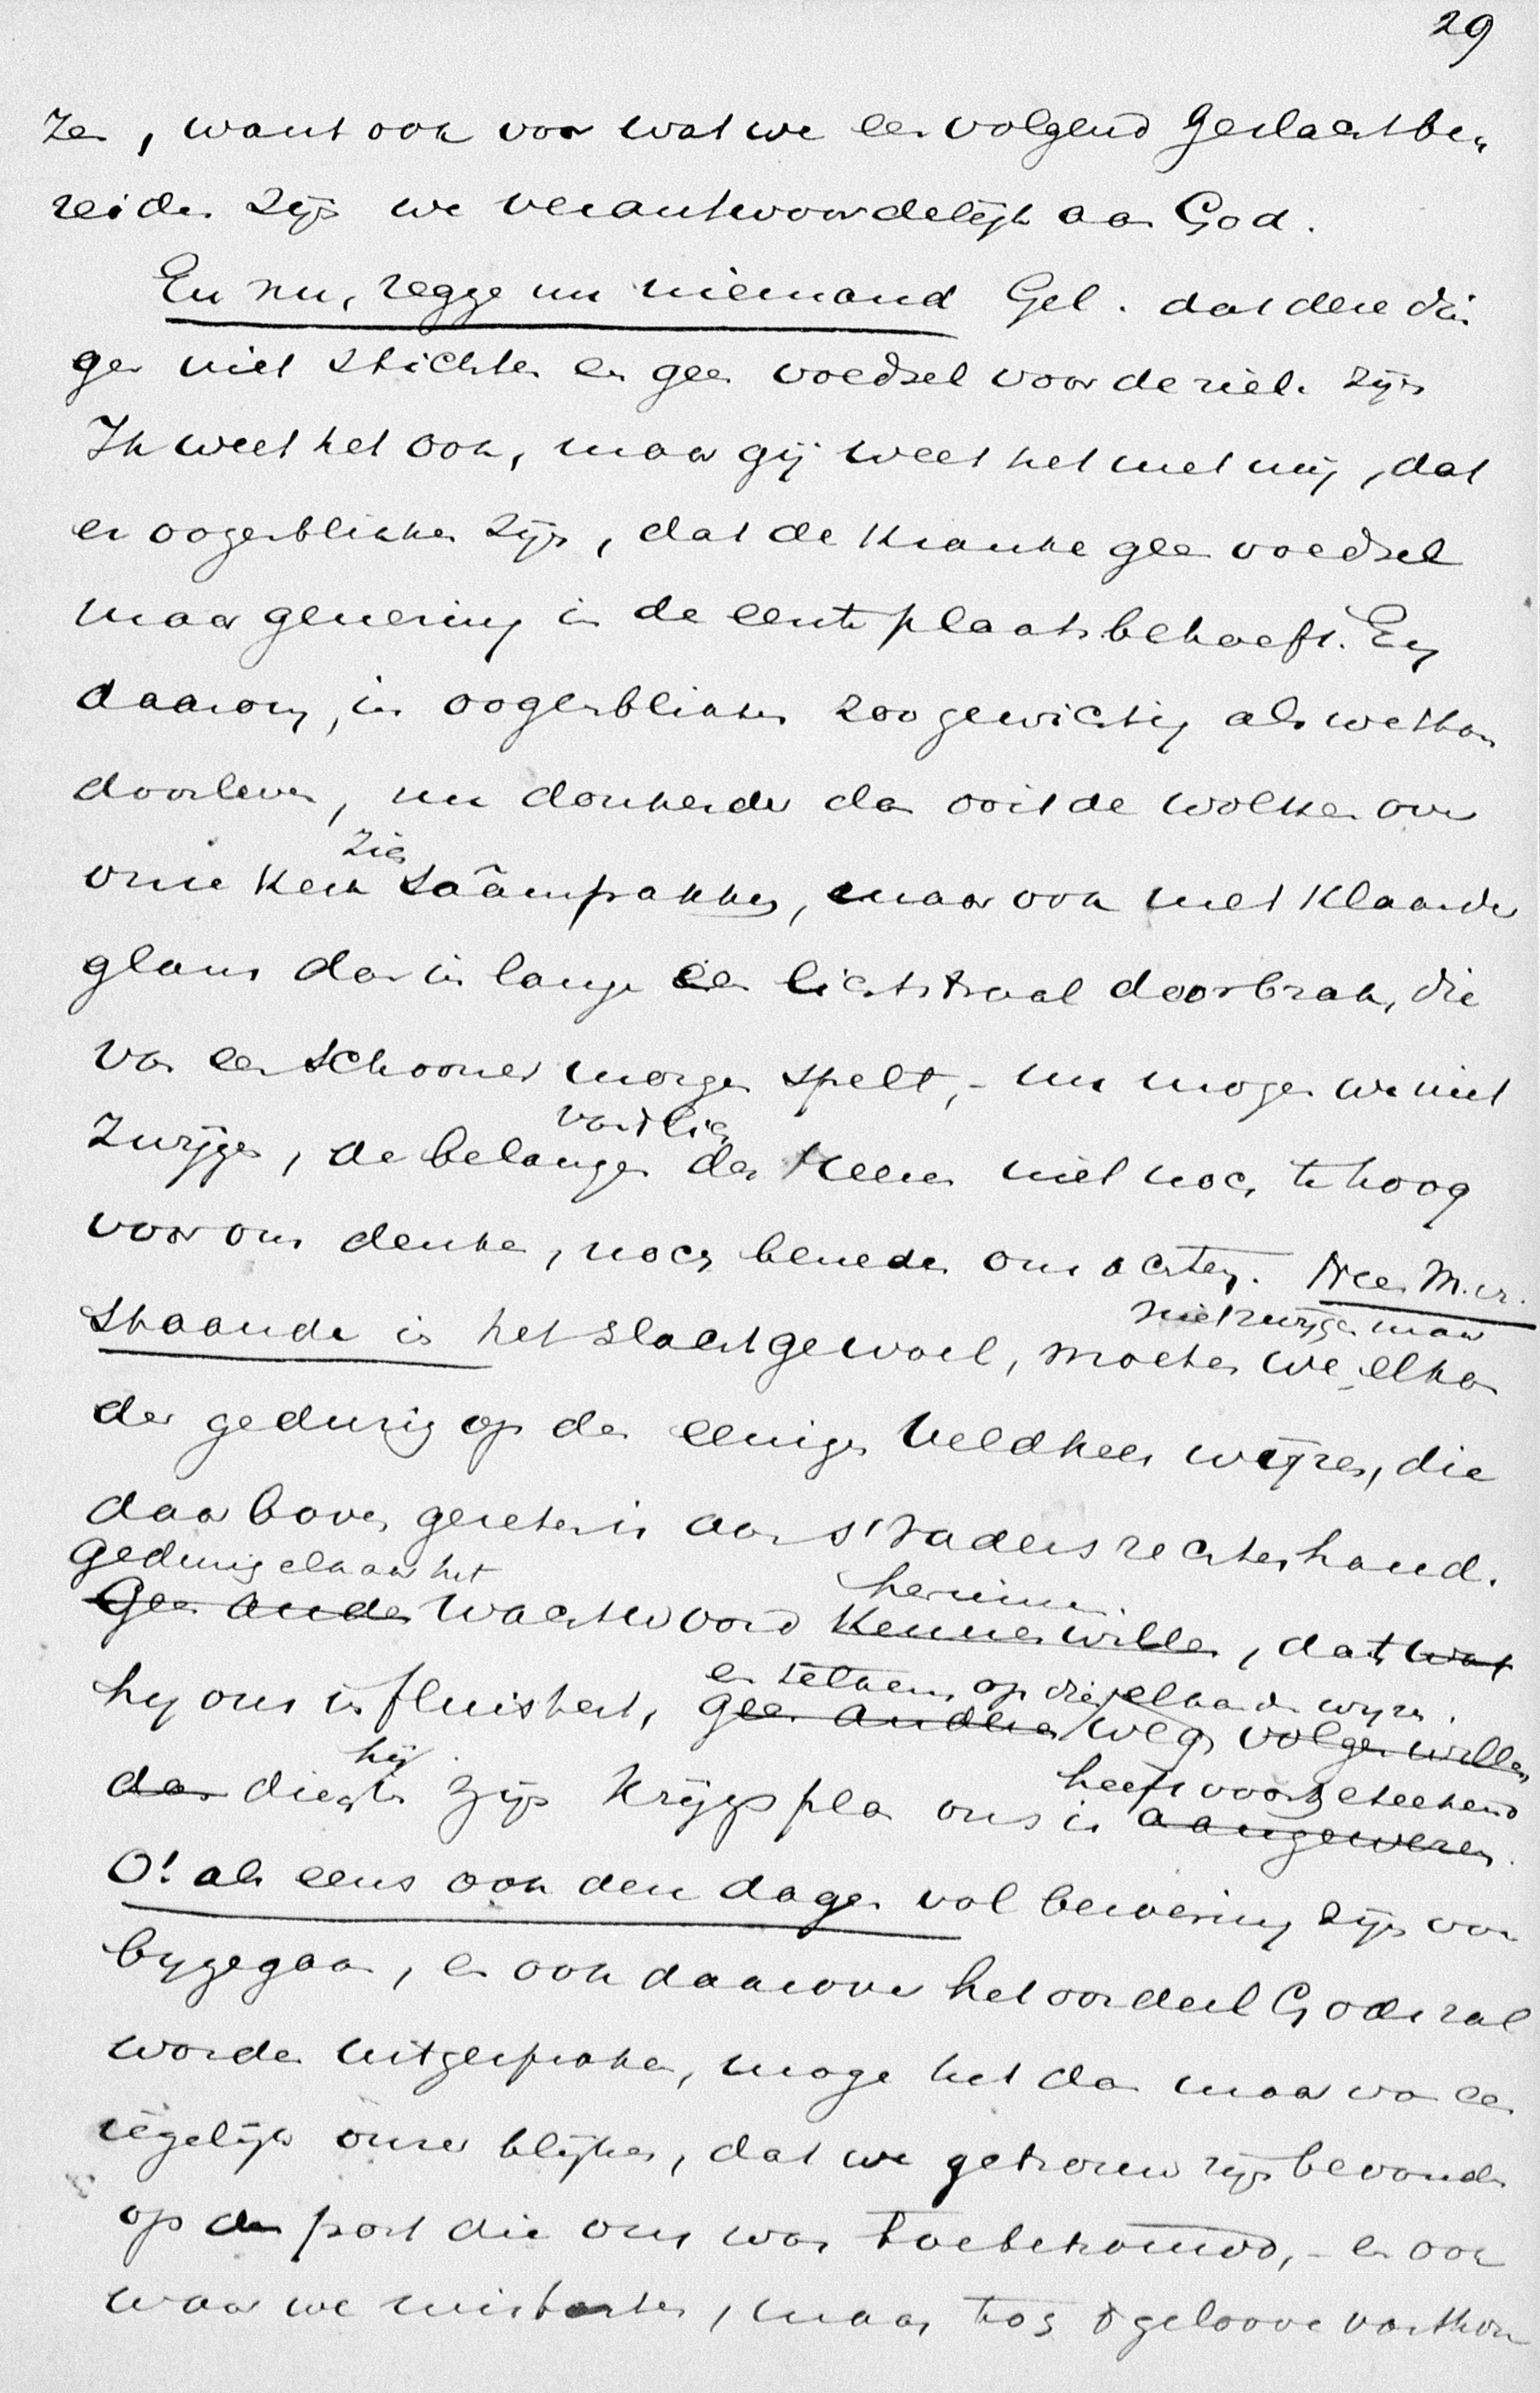 29
zen, want ook voor wat we een volgend geslacht be-
reiden zijn we verantwoordelijk aan God.
En nu, zegge nu niemand Gel. dat deze din
gen niet stichten en geen voedsel voor de ziel zijn
Ik weet het ook, maar gij weet het met mij, dat
er oogenblikken zijn, dat de kranke geen voedsel
maar genezing in de eerste plaats behoeft. En
daarom, in oogenblikken zoo gewichtig als we thans
doorleven, nu donkerder dan ooit de wolken over
zich
onze kerk saâmpakken, maar ook met klaarder
glans dan in lange een lichtstraal doorbrak, die
van een schooner morgen spelt, - nu mogen we niet
vandlich
zwijgen, de belangen des Heeren niet noch te hoog
voor ons denken, noch beneden ons achten. Neen M. vr.
niet zwijgen maar
Staande in het slachtgewoel, moeten we elkan
der gedurig op den eenigen Veldheer wijzen, die
daarboven gezeten is aan s' Vaders rechterhand.
Gedurig elkaar het
herinneren
Geen ander wachtwoord kennen willen, dat wat
en telkens op die elkander wijzen.
hy ons influistert, geen anderen weg volgen willen
hij
heeft voorgeteekend
dan die in zijn krijgsplan ons is aangewezen.
O! als eens ook deze dagen vol beroering zijn voor
bygegaan, en ook daarover het oordeel Gods zal
worden uitgesproken, moge het dan maar van een
iegelijk onzer blijken, dat we getrouw zijn bevonden
op den post die ons was toebetrouwd, - en ook
waar we mistastten, maar toch 't geloove vasthou